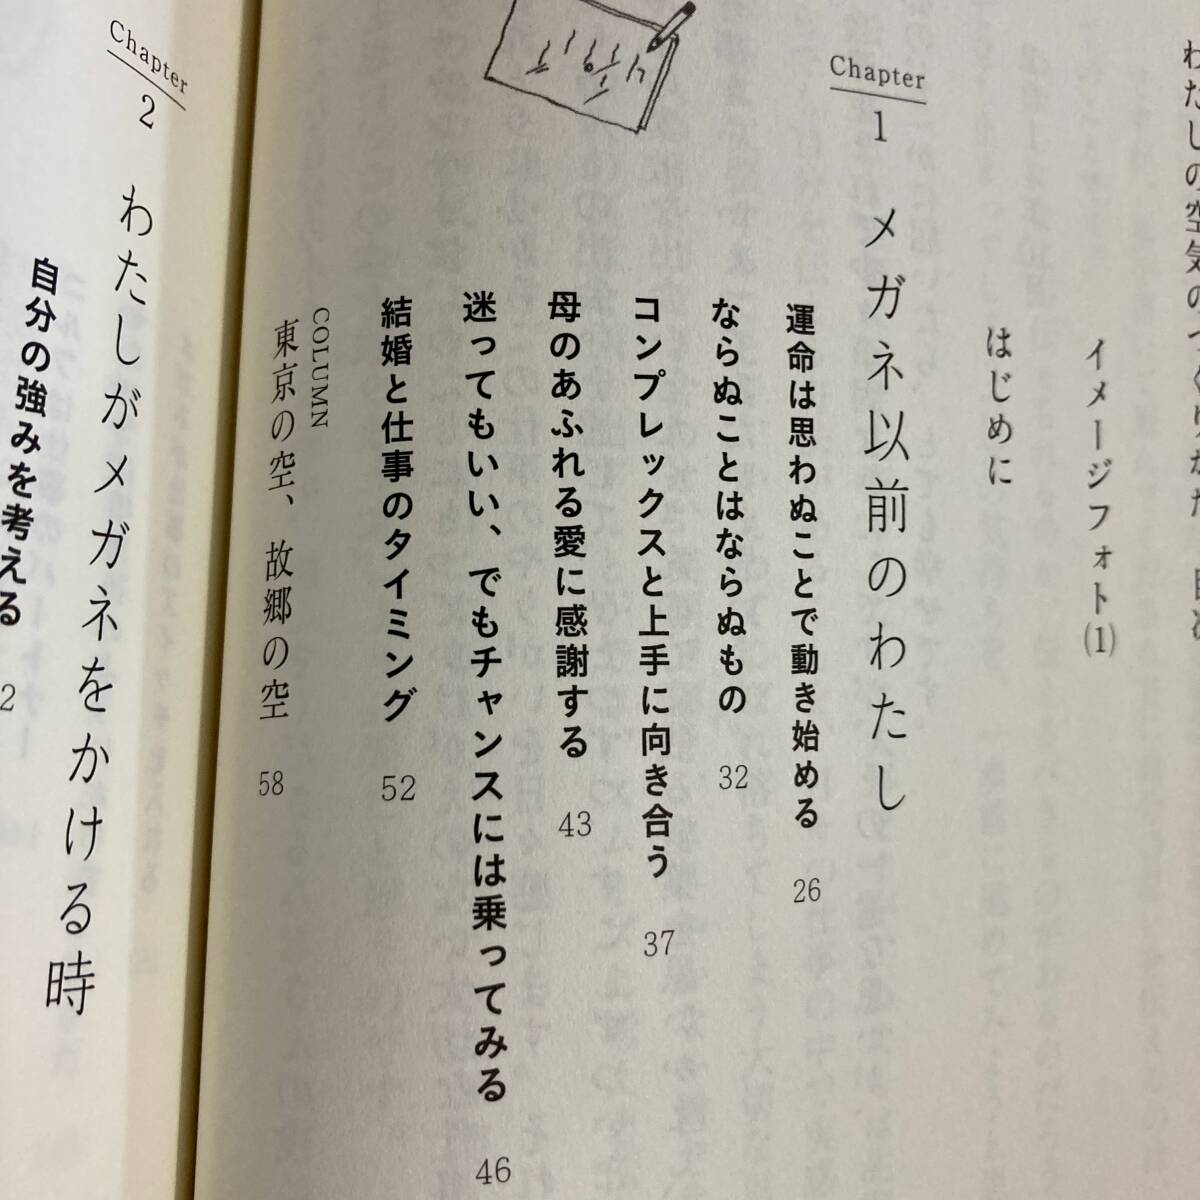 わたしの空気のつくりかた　目次
イメージフォト(1)
はじめに
Chapter
1
メガネ以前のわたし
運命は思わぬことで動き始める 26
ならぬことはならぬもの 32
コンプレックスと上手に向き合う 37
母のあふれる愛に感謝する 43
迷ってもいい、でもチャンスには乗ってみる 46
結婚と仕事のタイミング 52
COLUMN
東京の空、故郷の空 58
Chapter
2
わたしがメガネをかける時
自分の強みを考える